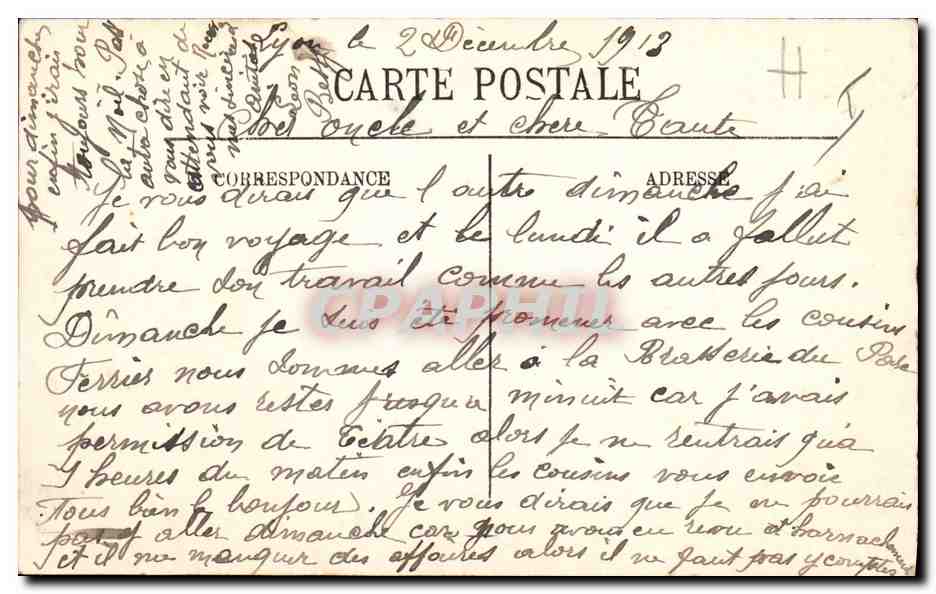 Lyon le 2 Décembre 1913
CARTE POSTALE
cher oncle et chere Tante
CORRESPONDANCE
ADRESSE
Je vous dirais que l autre dimanche j'ai
fait bon voyage et le lundi il a fallut
prendre son travail comme les autres jours.
Dimanche je suis été promener avec les cousins
Ferrier nous sommes aller a la Brasserie du Parc
nous avons restés jusque minuit car j'avais
permission de Téatre alors je ne rentrais qu'a
1 heures du matin enfin les cousins vous envoie
Tous bien le bonjour. Je vous dirais que je ne pourrais
pas y aller dimanche car nous avons eu revu d harnachement
et il me manquer des affaires alors il ne faut pas y comptes
pour dimanche
enfin j'irais
toujours pour
la Noël Pas
autre chose à
vous dire en
attendant de
vous voir
mes sincères
amitiés
CPAPHIL
H